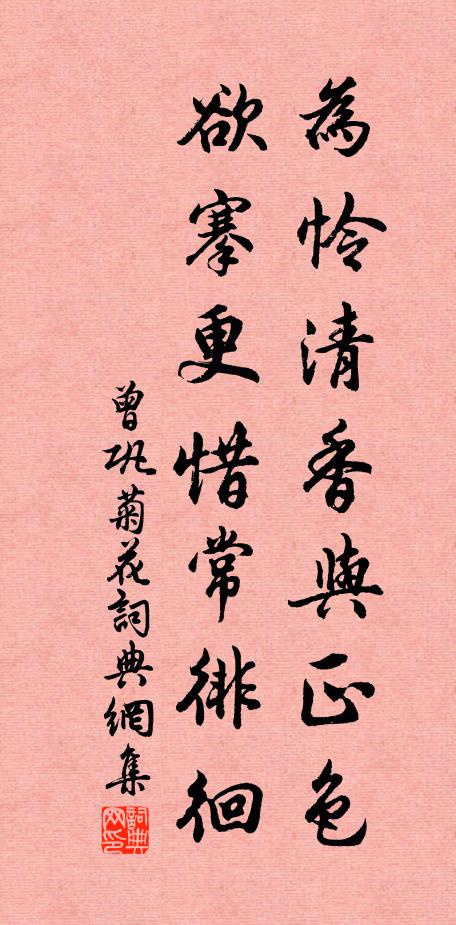 為怜清香與正色
欲搴更惜常徘徊
曾巩菊花詞典網集
詞典网印